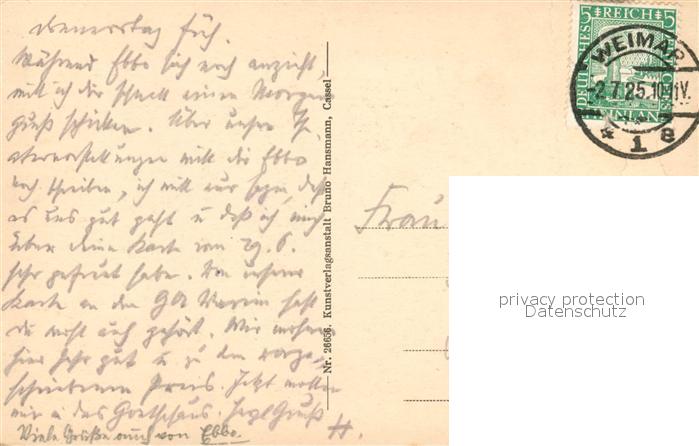 Donnerstag früh.
Während Ebbo sich noch anzieht,
will ich dir schnell einen Morgen-
gruß schicken. Über unsre
wird dir Ebbo
noch schreiben, ich will nur sagen, daß
es uns gut geht u. daß ich mich
über deine Karte vom 29. 6.
sehr gefreut habe. Von unserer
Karte an den Verein hast
du wohl auch gehört. Wir wohnen
hier sehr gut u. zu dem vorge-
schriebenen Preis. Jetzt wollen
wir in das Goethehaus. Herzl. Gruß
H.
Viele Grüße auch von Ebbo.
Nr. 26656. Kunstverlagsanstalt Bruno Hansmann, Cassel
DEUTSCHES REICH
5 5
WEIMAR
-2.7.25.10-11V.
* 1 a
Frau
privacy protection
Datenschutz